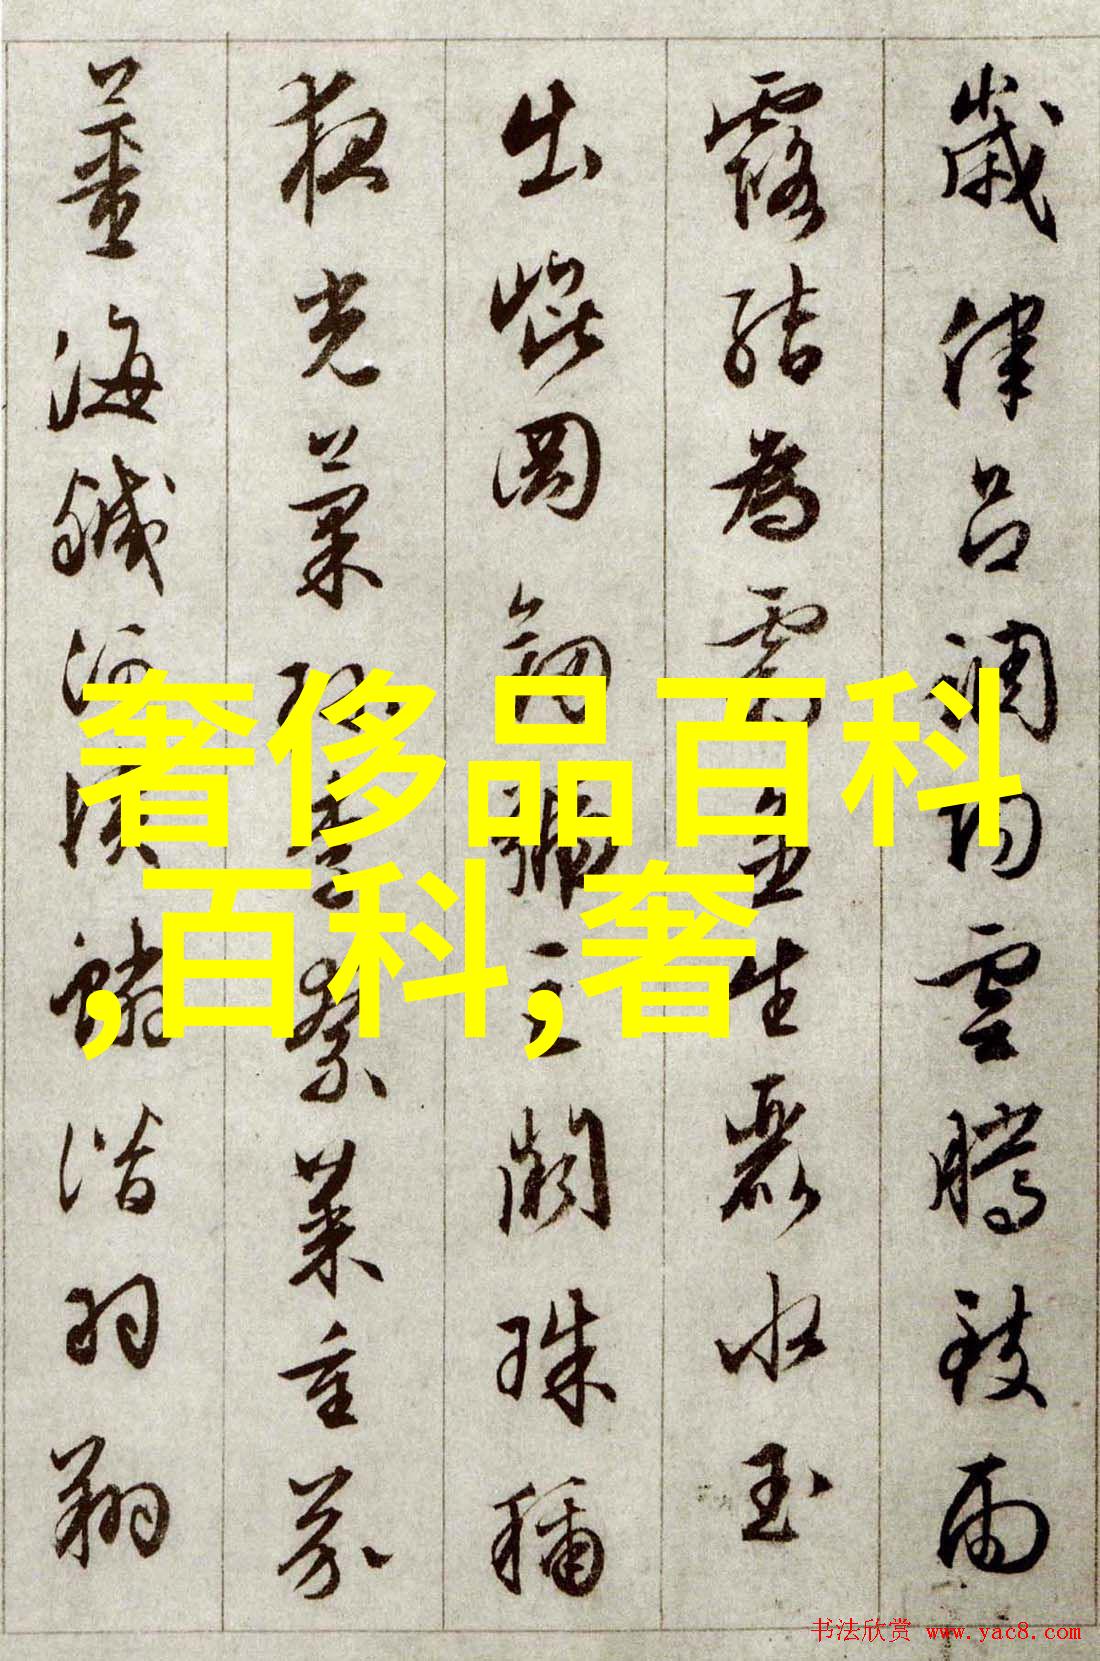 歲律呂調陽雲騰致雨
露結為霜金生麗水玉
出崐岡劍號巨闕珠稱
夜光菓珍李柰菜重芥
薑海鹹河淡鱗潛羽翔
奢侈品百科
,百科,奢
书法欣赏 www.yac8.com